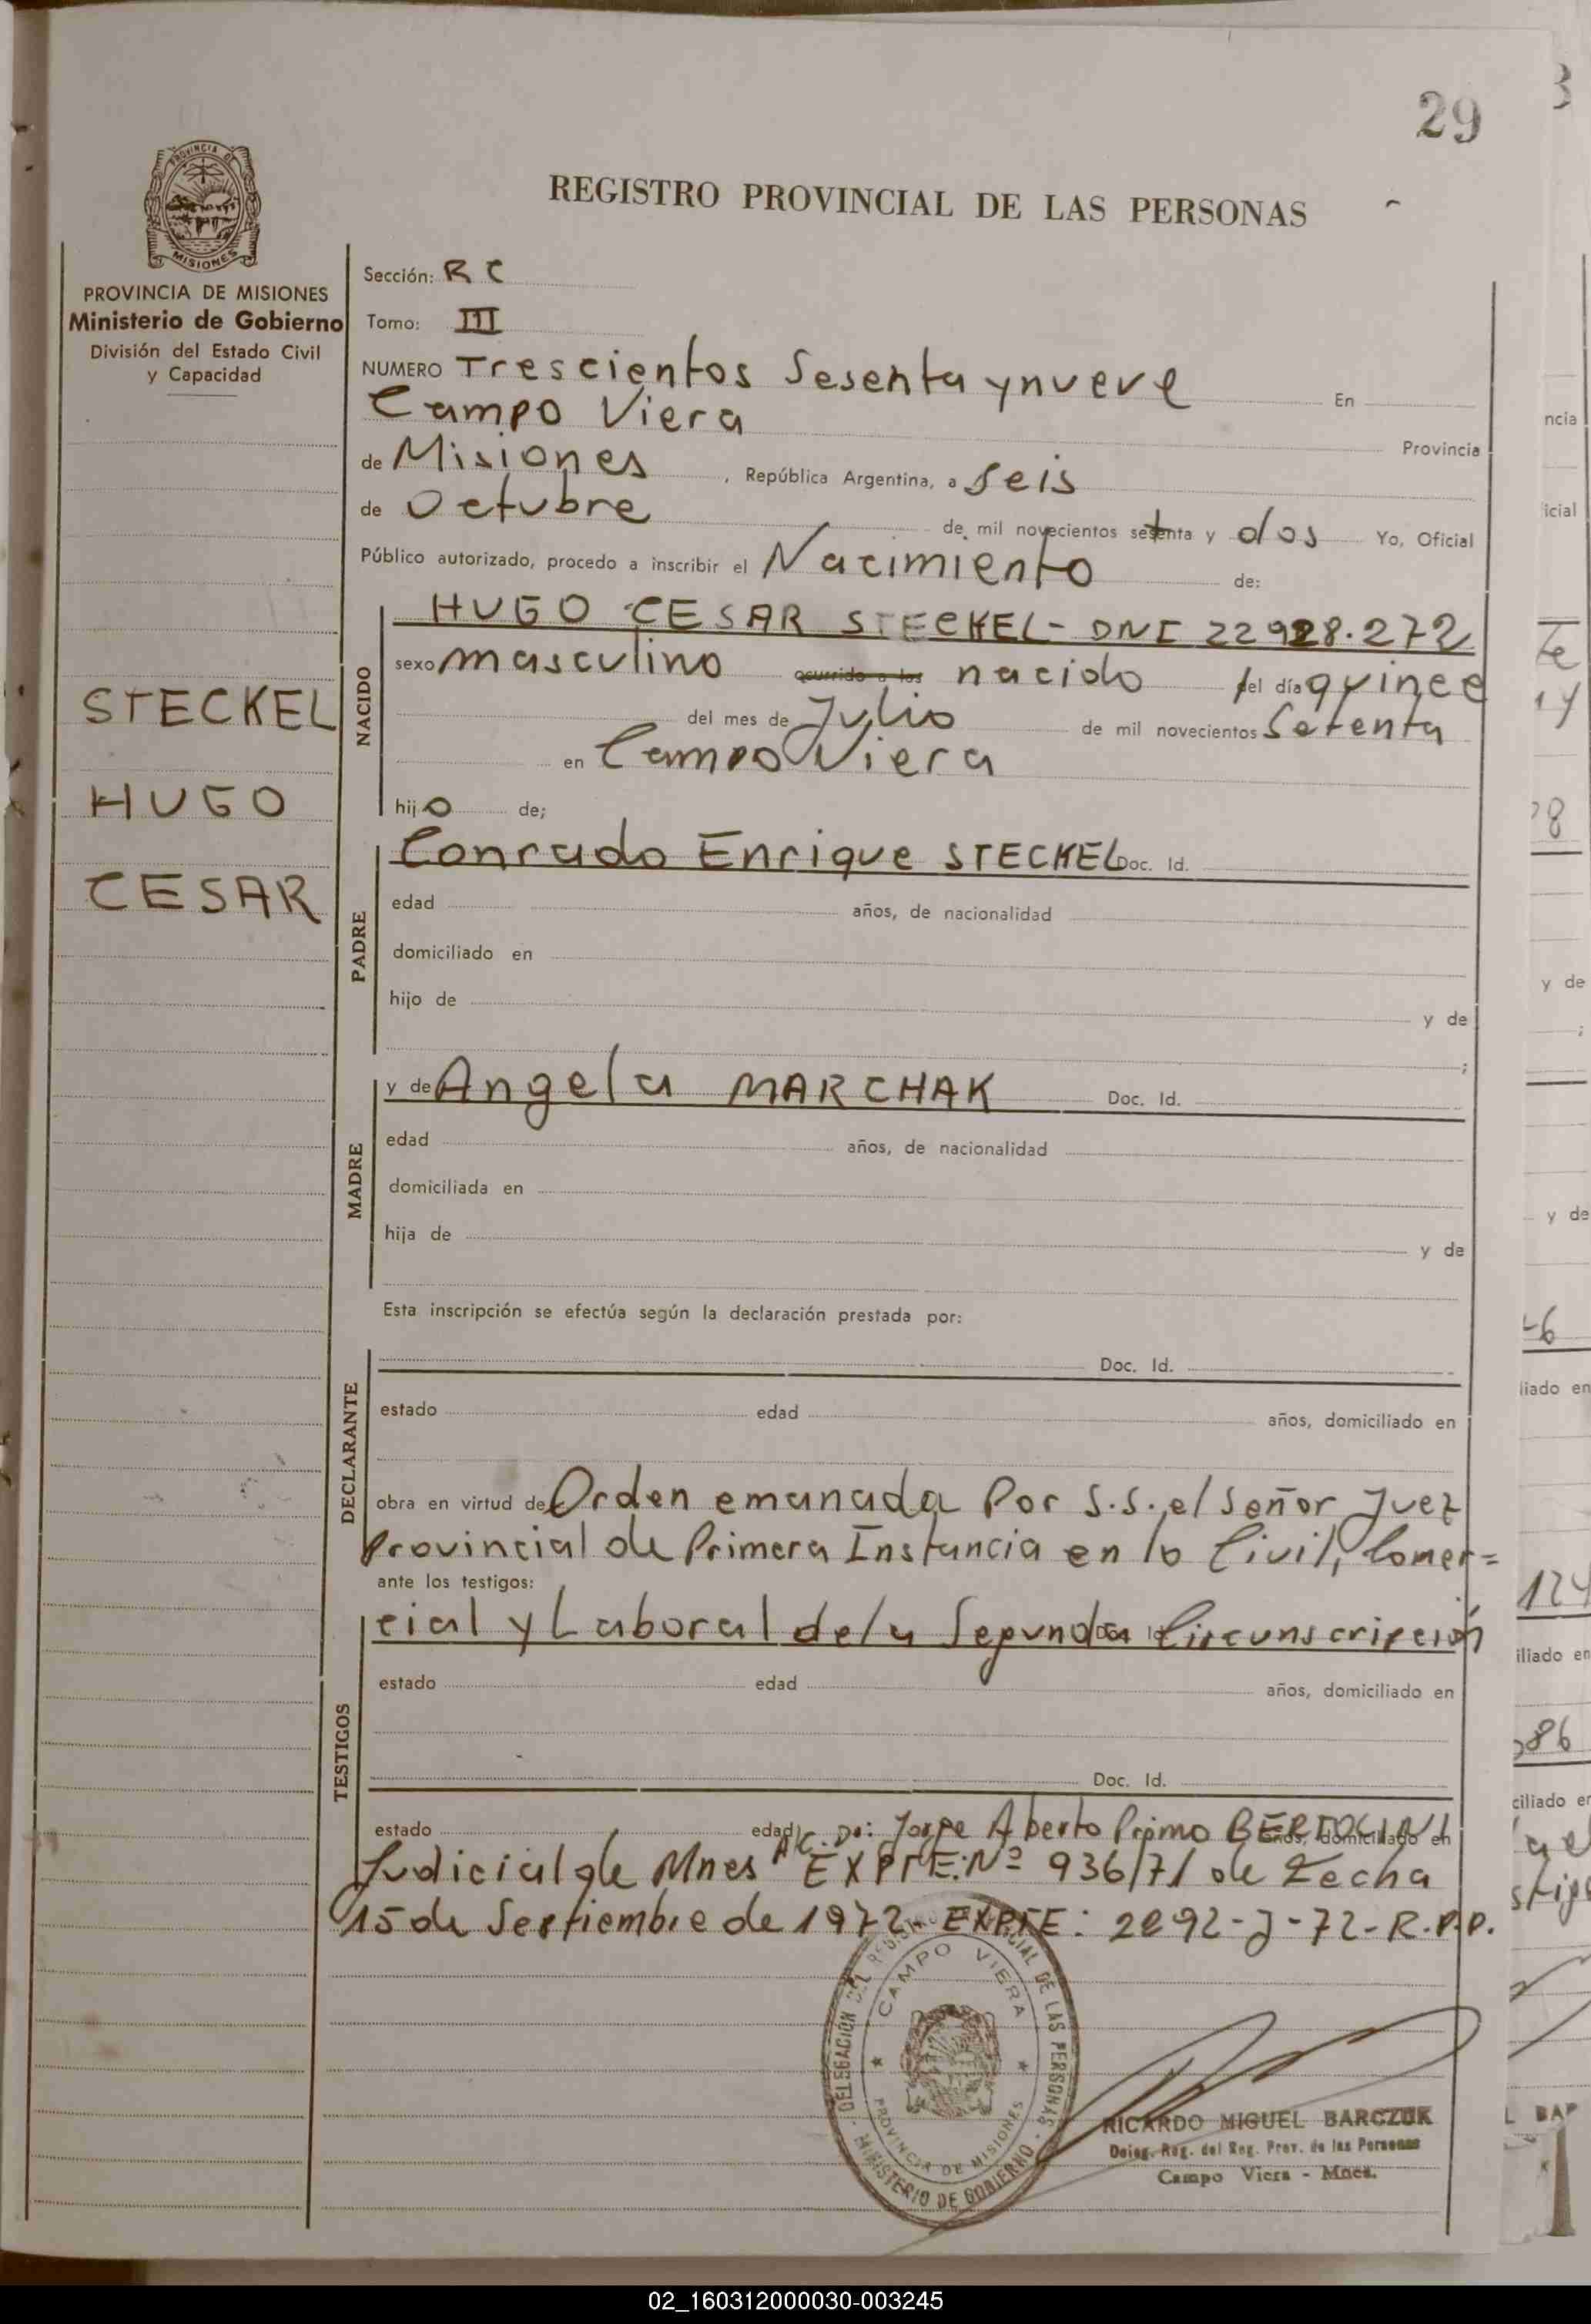 29
PROVINCIA DE
MISIONES
REGISTRO PROVINCIAL DE LAS PERSONAS
PROVINCIA DE MISIONES
Ministerio de Gobierno
División del Estado Civil
y Capacidad
STECKEL
HUGO
CESAR
Sección: R C
Tomo: III
NUMERO Trescientos Sesenta y nueve En
Campo Viera Provincia
de Misiones, República Argentina, a seis
de Octubre de mil novecientos setenta y dos Yo, Oficial
Público autorizado, procedo a inscribir el Nacimiento de:
NACIDO
HUGO CESAR STECKEL - DNI 22928.272
sexo masculino ocurrido a las nacido del día quince
del mes de Julio de mil novecientos Setenta
en Campo Viera
hijo de;
PADRE
Conrado Enrique STECKEL Doc. Id.
edad años, de nacionalidad
domiciliado en
hijo de y de
;
MADRE
y de Angela MARCHAK Doc. Id.
edad años, de nacionalidad
domiciliada en
hija de y de
Esta inscripción se efectúa según la declaración prestada por:
DECLARANTE
Doc. Id.
estado edad años, domiciliado en
obra en virtud de Orden emanada Por S.S. el Señor Juez
Provincial de Primera Instancia en lo Civil, Comer=
ante los testigos:
TESTIGOS
cial y Laboral de la Segunda Circunscripción
estado edad años, domiciliado en
Doc. Id.
estado edad Dr: Jorge Aberto Primo domiciliado en
Judicial de Mnes EXPTE: Nº 936/71 de Fecha
15 de Septiembre de 1972. EXPTE: 2892-J-72-R.P.P.
DELEGACIÓN DEL REGISTRO PROVINCIAL DE LAS PERSONAS
CAMPO VIERA
PROVINCIA DE MISIONES
MINISTERIO DE GOBIERNO
RICARDO MIGUEL BARCZUK
Deleg. Reg. del Reg. Prov. de las Personas
Campo Viera - Mnes.
ncia
icial
y de
y de
liado en
124
iliado en
86
ciliado en
02_160312000030-003245